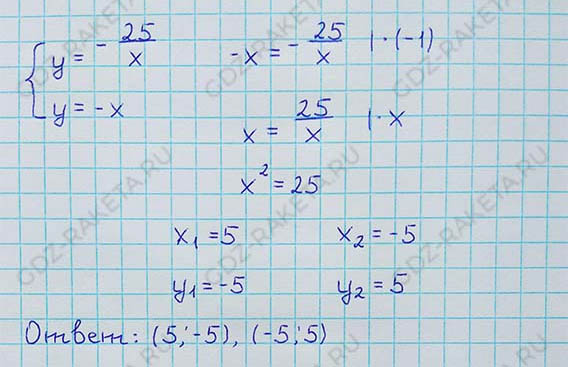 { y = - 25/x   -x = - 25/x | · (-1)
y = -x
x = 25/x | · x
x² = 25
x₁ = 5   x₂ = -5
y₁ = -5   y₂ = 5
Ответ: (5;-5), (-5;5)
GDZ-RAKETA.RU